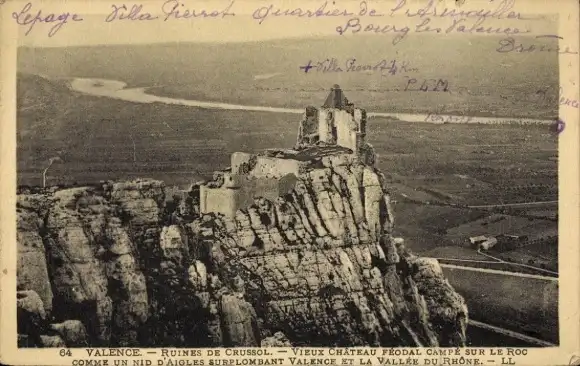 Lepage Villa Pierrot Quartier de l'Armailler
Bourg les Valence
Drôme
+ Villa Pierrot 4 km
P.L.M
64 VALENCE. — RUINES DE CRUSSOL. — VIEUX CHÂTEAU FÉODAL CAMPÉ SUR LE ROC
COMME UN NID D'AIGLES SURPLOMBANT VALENCE ET LA VALLÉE DU RHÔNE. — LL